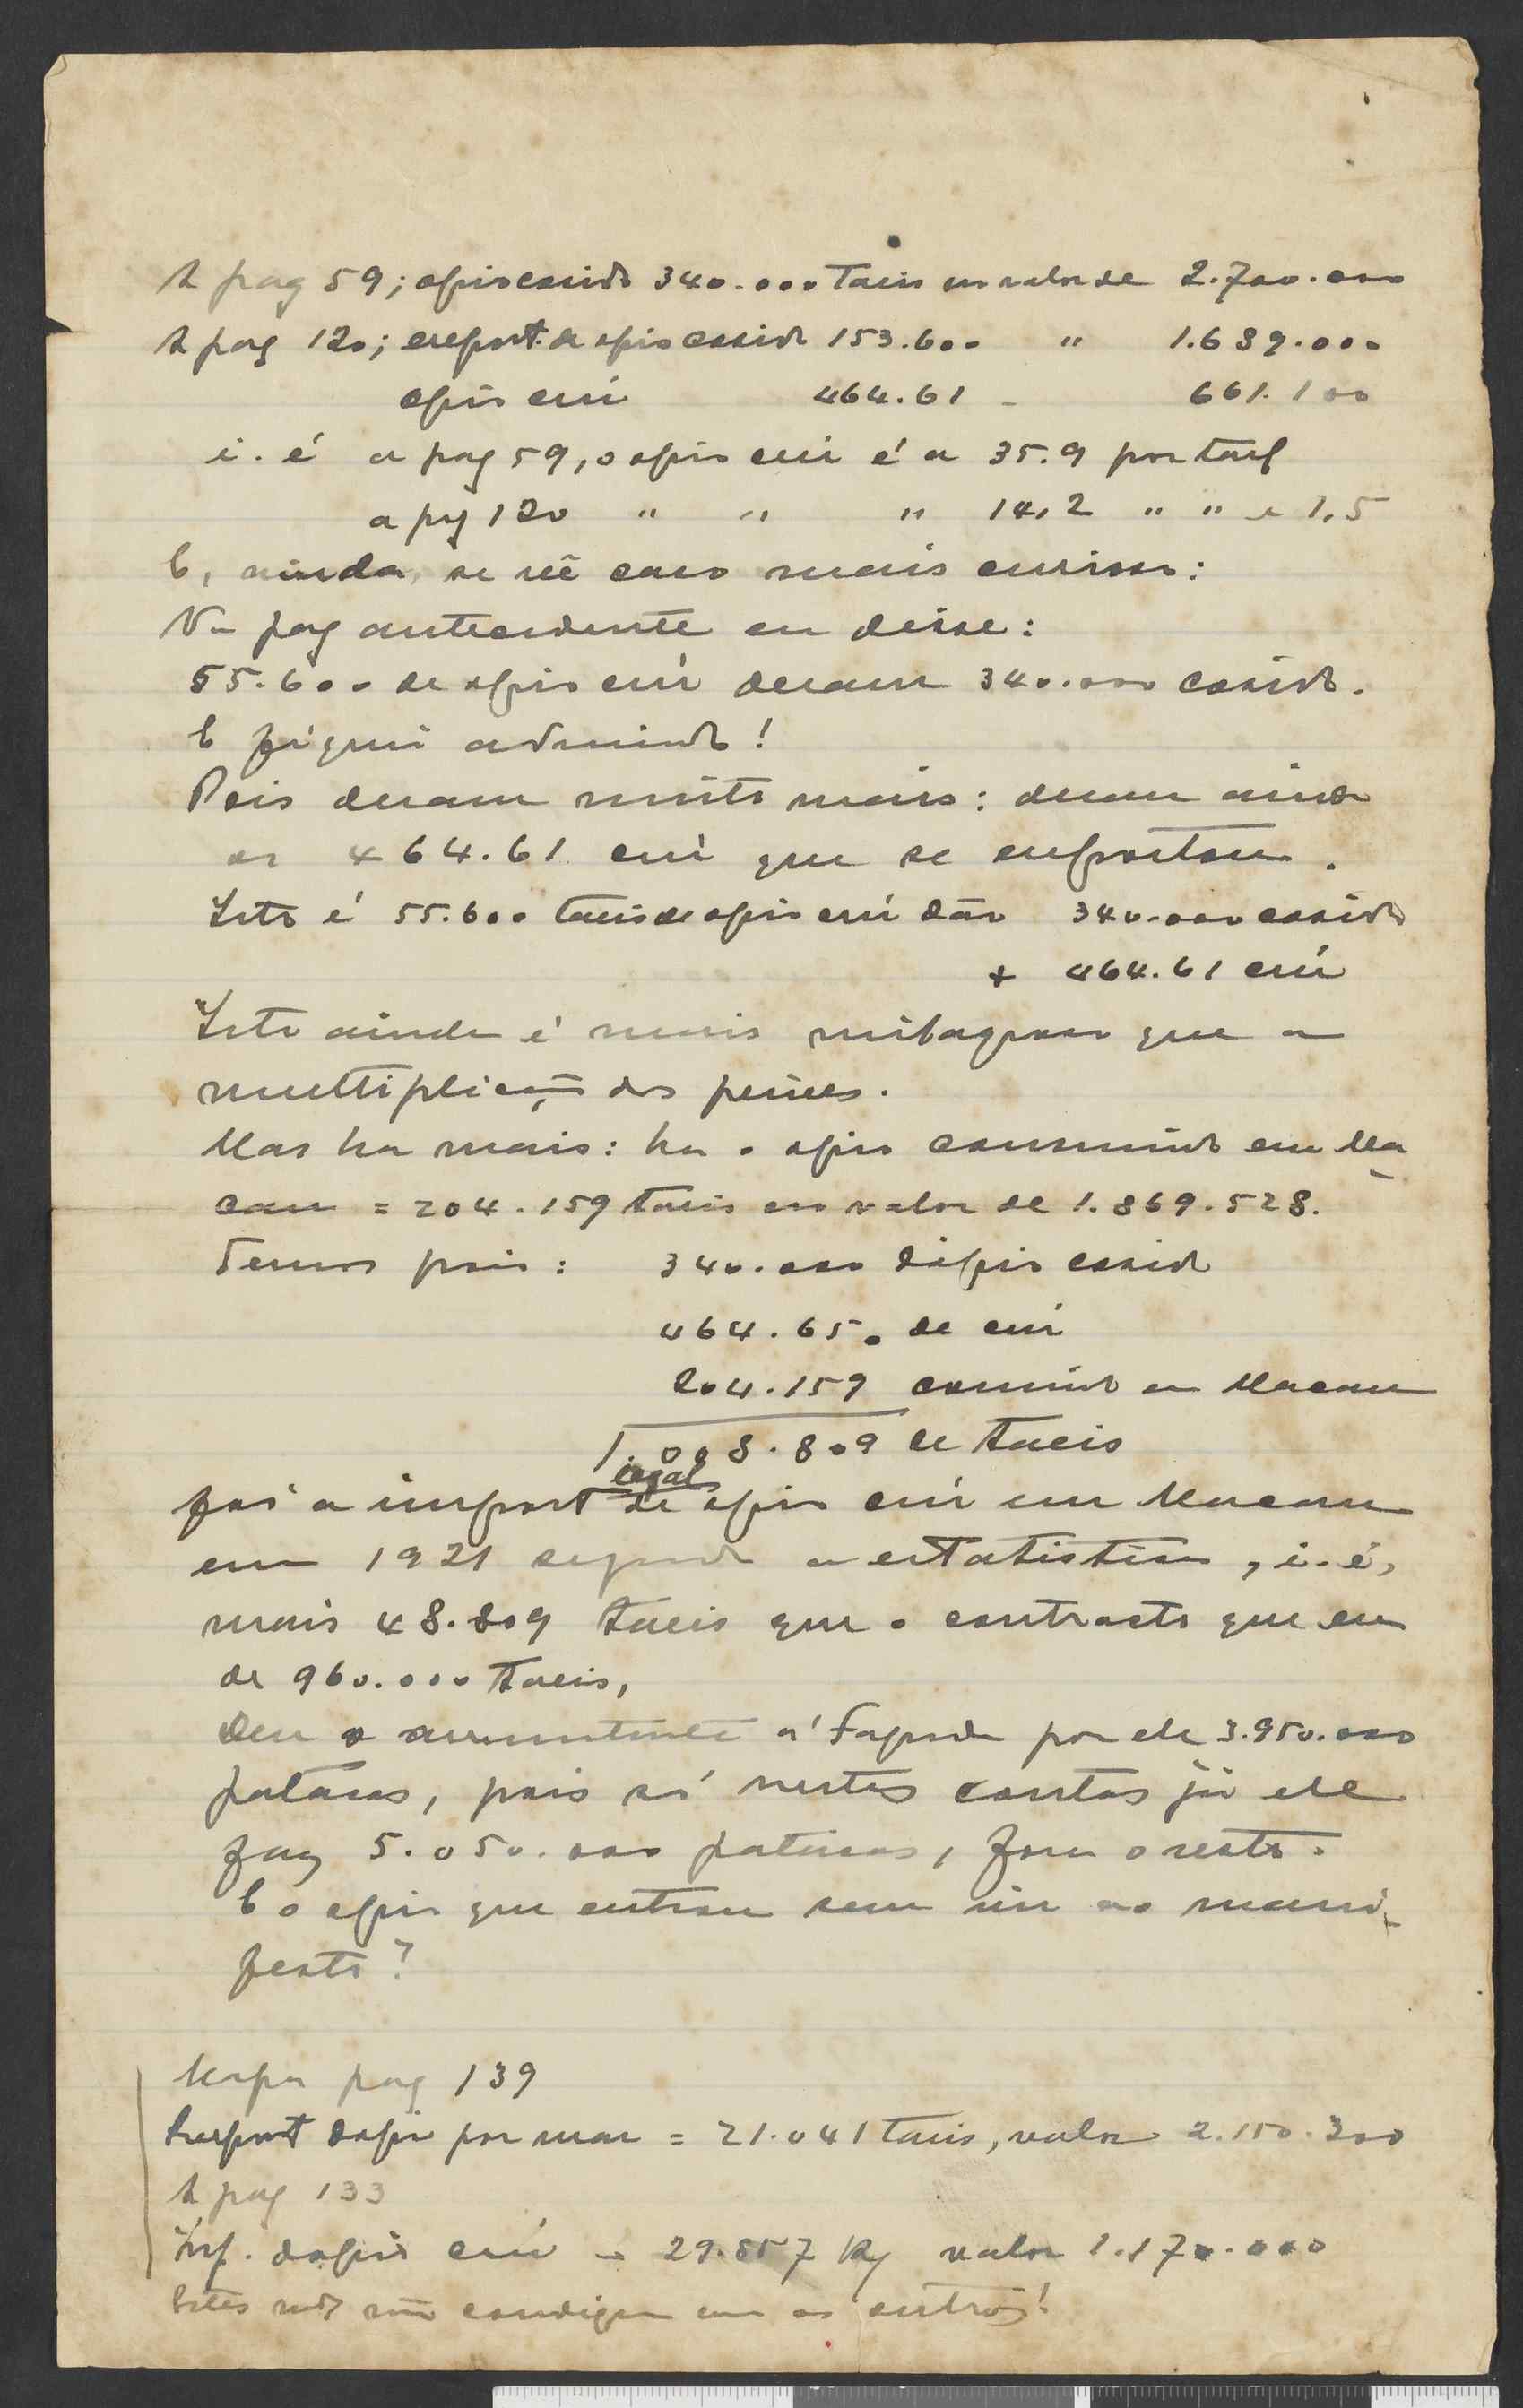 A pag 59; opio cosido 340.000 taeis no valor de 2.700.000
A pag 120; export. de opio cosido 153.600 " 1.689.000
opio crú 464.61 - 661.100
i. é a pag 59, o opio crú é a 35.9 por tael
a pag 120 " " " 14,2 " " e 1,5
E, ainda, se vê caso mais curioso:
Na pag antecedente eu disse:
55.600 de opio crú deram 340.000 cosido.
E fiquei admirado!
Pois deram muito mais: deram ainda
os 464.61 crú que se exportou.
Isto é 55.600 taeis de opio crú dão 340.000 cosido
+ 464.61 crú
Isto ainda é mais milagroso que a
multiplicação dos peixes.
Mas ha mais: ha o opio consumido em Ma
cau = 204.159 taeis no valor de 1.869.528.
Temos pois: 340.000 d'opio cosido
464.650 de crú
204.159 consumido em Macau
1.008.809 de taeis
foi a import legal de opio crú em Macau
em 1921 segundo a estatistica, i. é,
mais 48.809 taeis que o contracto que era
de 960.000 taeis,
Deu o arrematante á Fazenda por ele 3.950.000
patacas, pois só nestas contas já ele
faz 5.050.000 patacas, fora o resto.
E o opio que entrou sem vir no mani-
festo?
Mapa pag 139
Export d'opio por mar = 21.041 taeis, valor 2.150.300
A pag 133
Imp. d'opio crú - 29.857 Kg valor 1.170.000
Estes não condigem com os outros!